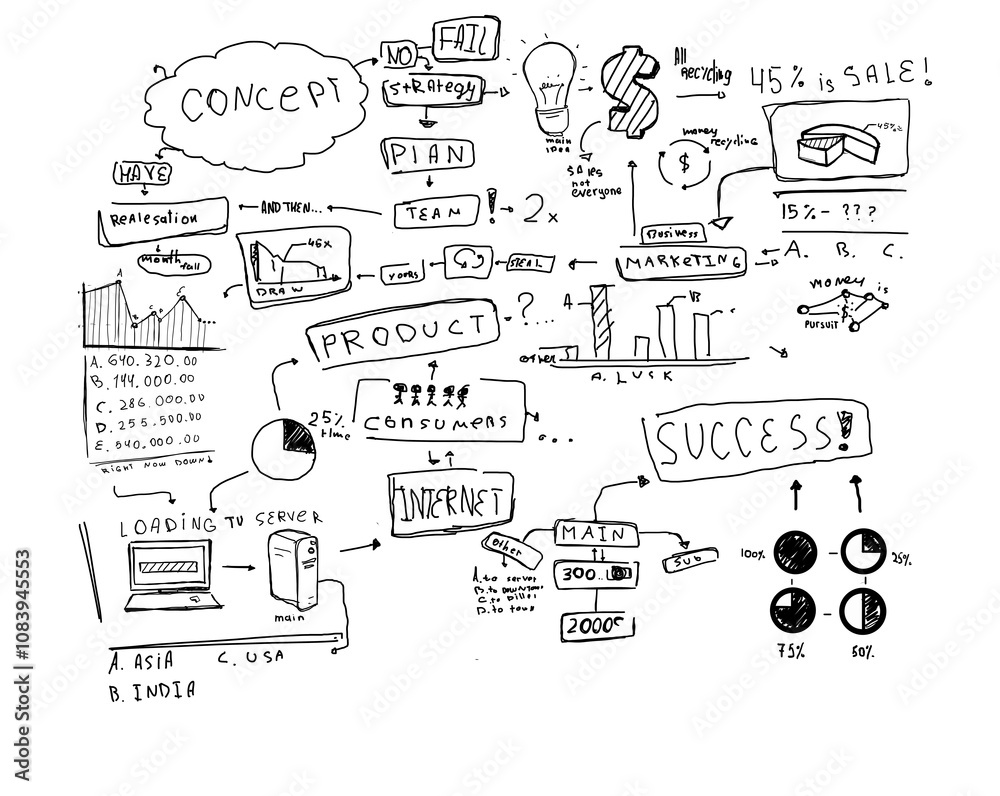 CONCEPT
NO
FAIL
STRATEGY
PLAN
TEAM
! 2x
main
idea
All
Recycling
45% is SALE!
45%
money
recycling
$
$
SALES
not
everyone
15% - ???
A. B. C.
HAVE
REALESATION
AND THEN...
month
fall
46x
DRAW
YOURS
Business
MARKETING
MONEY is
$
PURSUIT
A
B
C
C
A. 640.320.00
B. 144.000.00
C. 286.000.00
D. 255.500.00
E. 540.000.00
RIGHT NOW DOWN!
PRODUCT
- ?...
A
B
other
A. LUCK
25%
time
CONSUMERS
...
SUCCESS!
INTERNET
LOADING TV SERVER
main
other
MAIN
SUB
300..
A. to server
B. to downtown
D. to town
100%
25%
75%
50%
A. ASIA
C. USA
B. INDIA
Adobe Stock | #1083945553
Adobe Stock